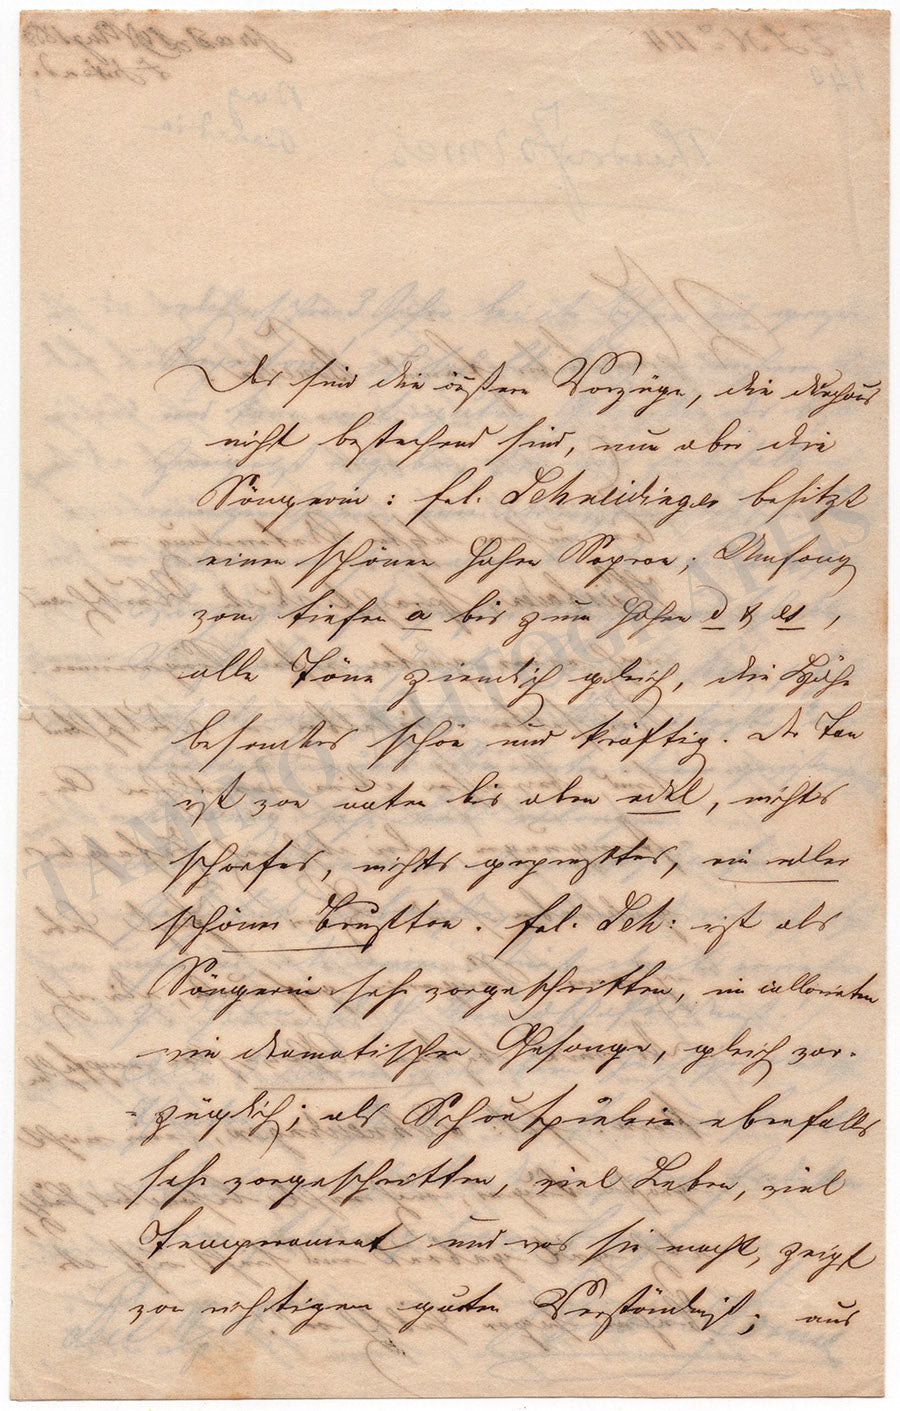 Das sind die äußern Vorzüge, die durchaus
nicht bestechend sind, nun aber die
Sängerin: frl. Schneidinger besitzt
einen schönen hohen Sopran; Umfang
vom tiefen a bis zum hohen d & es,
alle Töne ziemlich gleich, die Höhe
besonders schön und kräftig. Der Ton
ist von unten bis oben edel, nichts
scharfes, nichts gepreßtes, ein edler
schöner Brustton. frl. Sch: ist als
Sängerin sehr vorgeschritten, im collorirten
wie dramatischen Gesange, gleich vor-
-züglich; als Schauspielerin ebenfalls
sehr vorgeschritten, viel Leben, viel
Temperament und was sie macht, zeigt
von richtigem guten Verständniß; aus
TAMINO AUTOGRAPHS